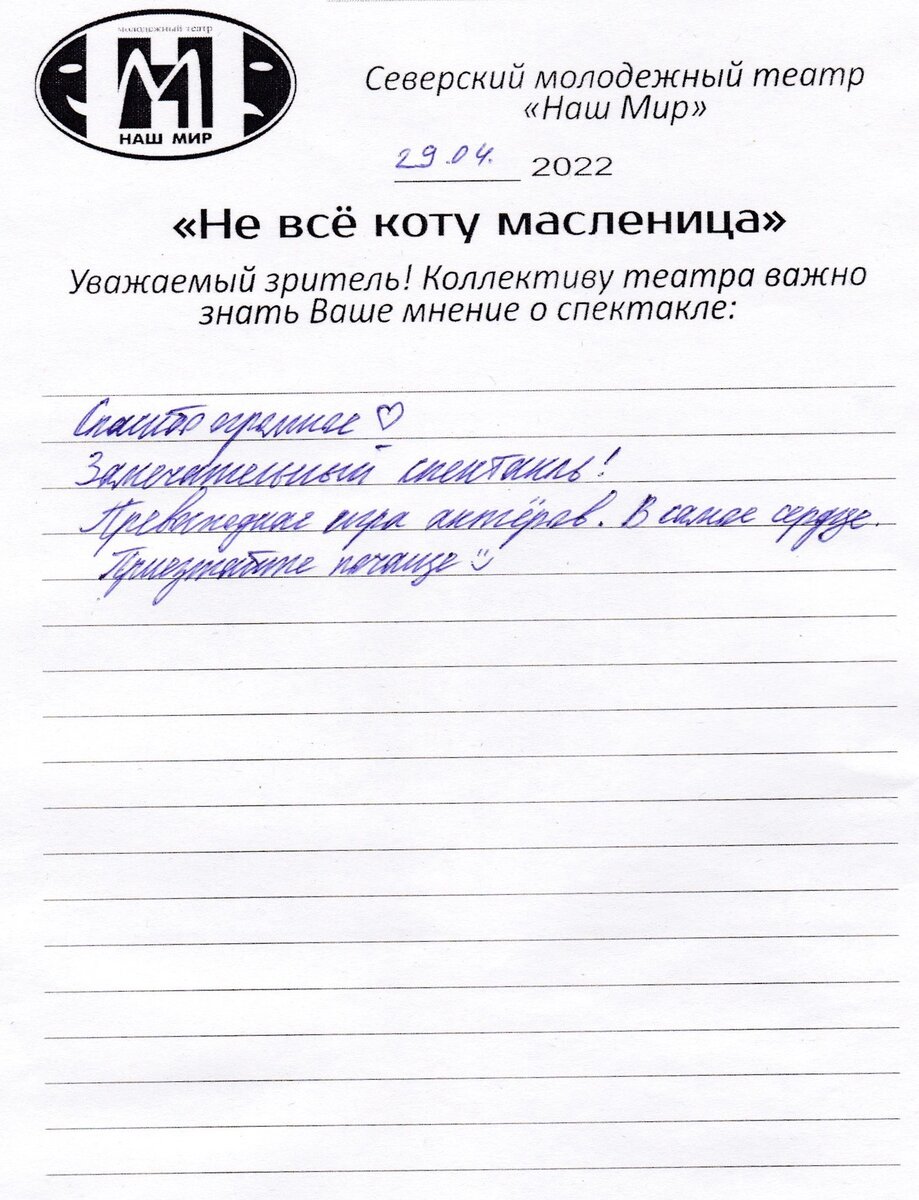 молодежный театр
НАШ МИР
Северский молодежный театр
«Наш Мир»
29.04. 2022
«Не всё коту масленица»
Уважаемый зритель! Коллективу театра важно
знать Ваше мнение о спектакле:
Спасибо огромное ♡
Замечательный спектакль!
Превосходная игра актёров. В самое сердце.
Приезжайте почаще :)